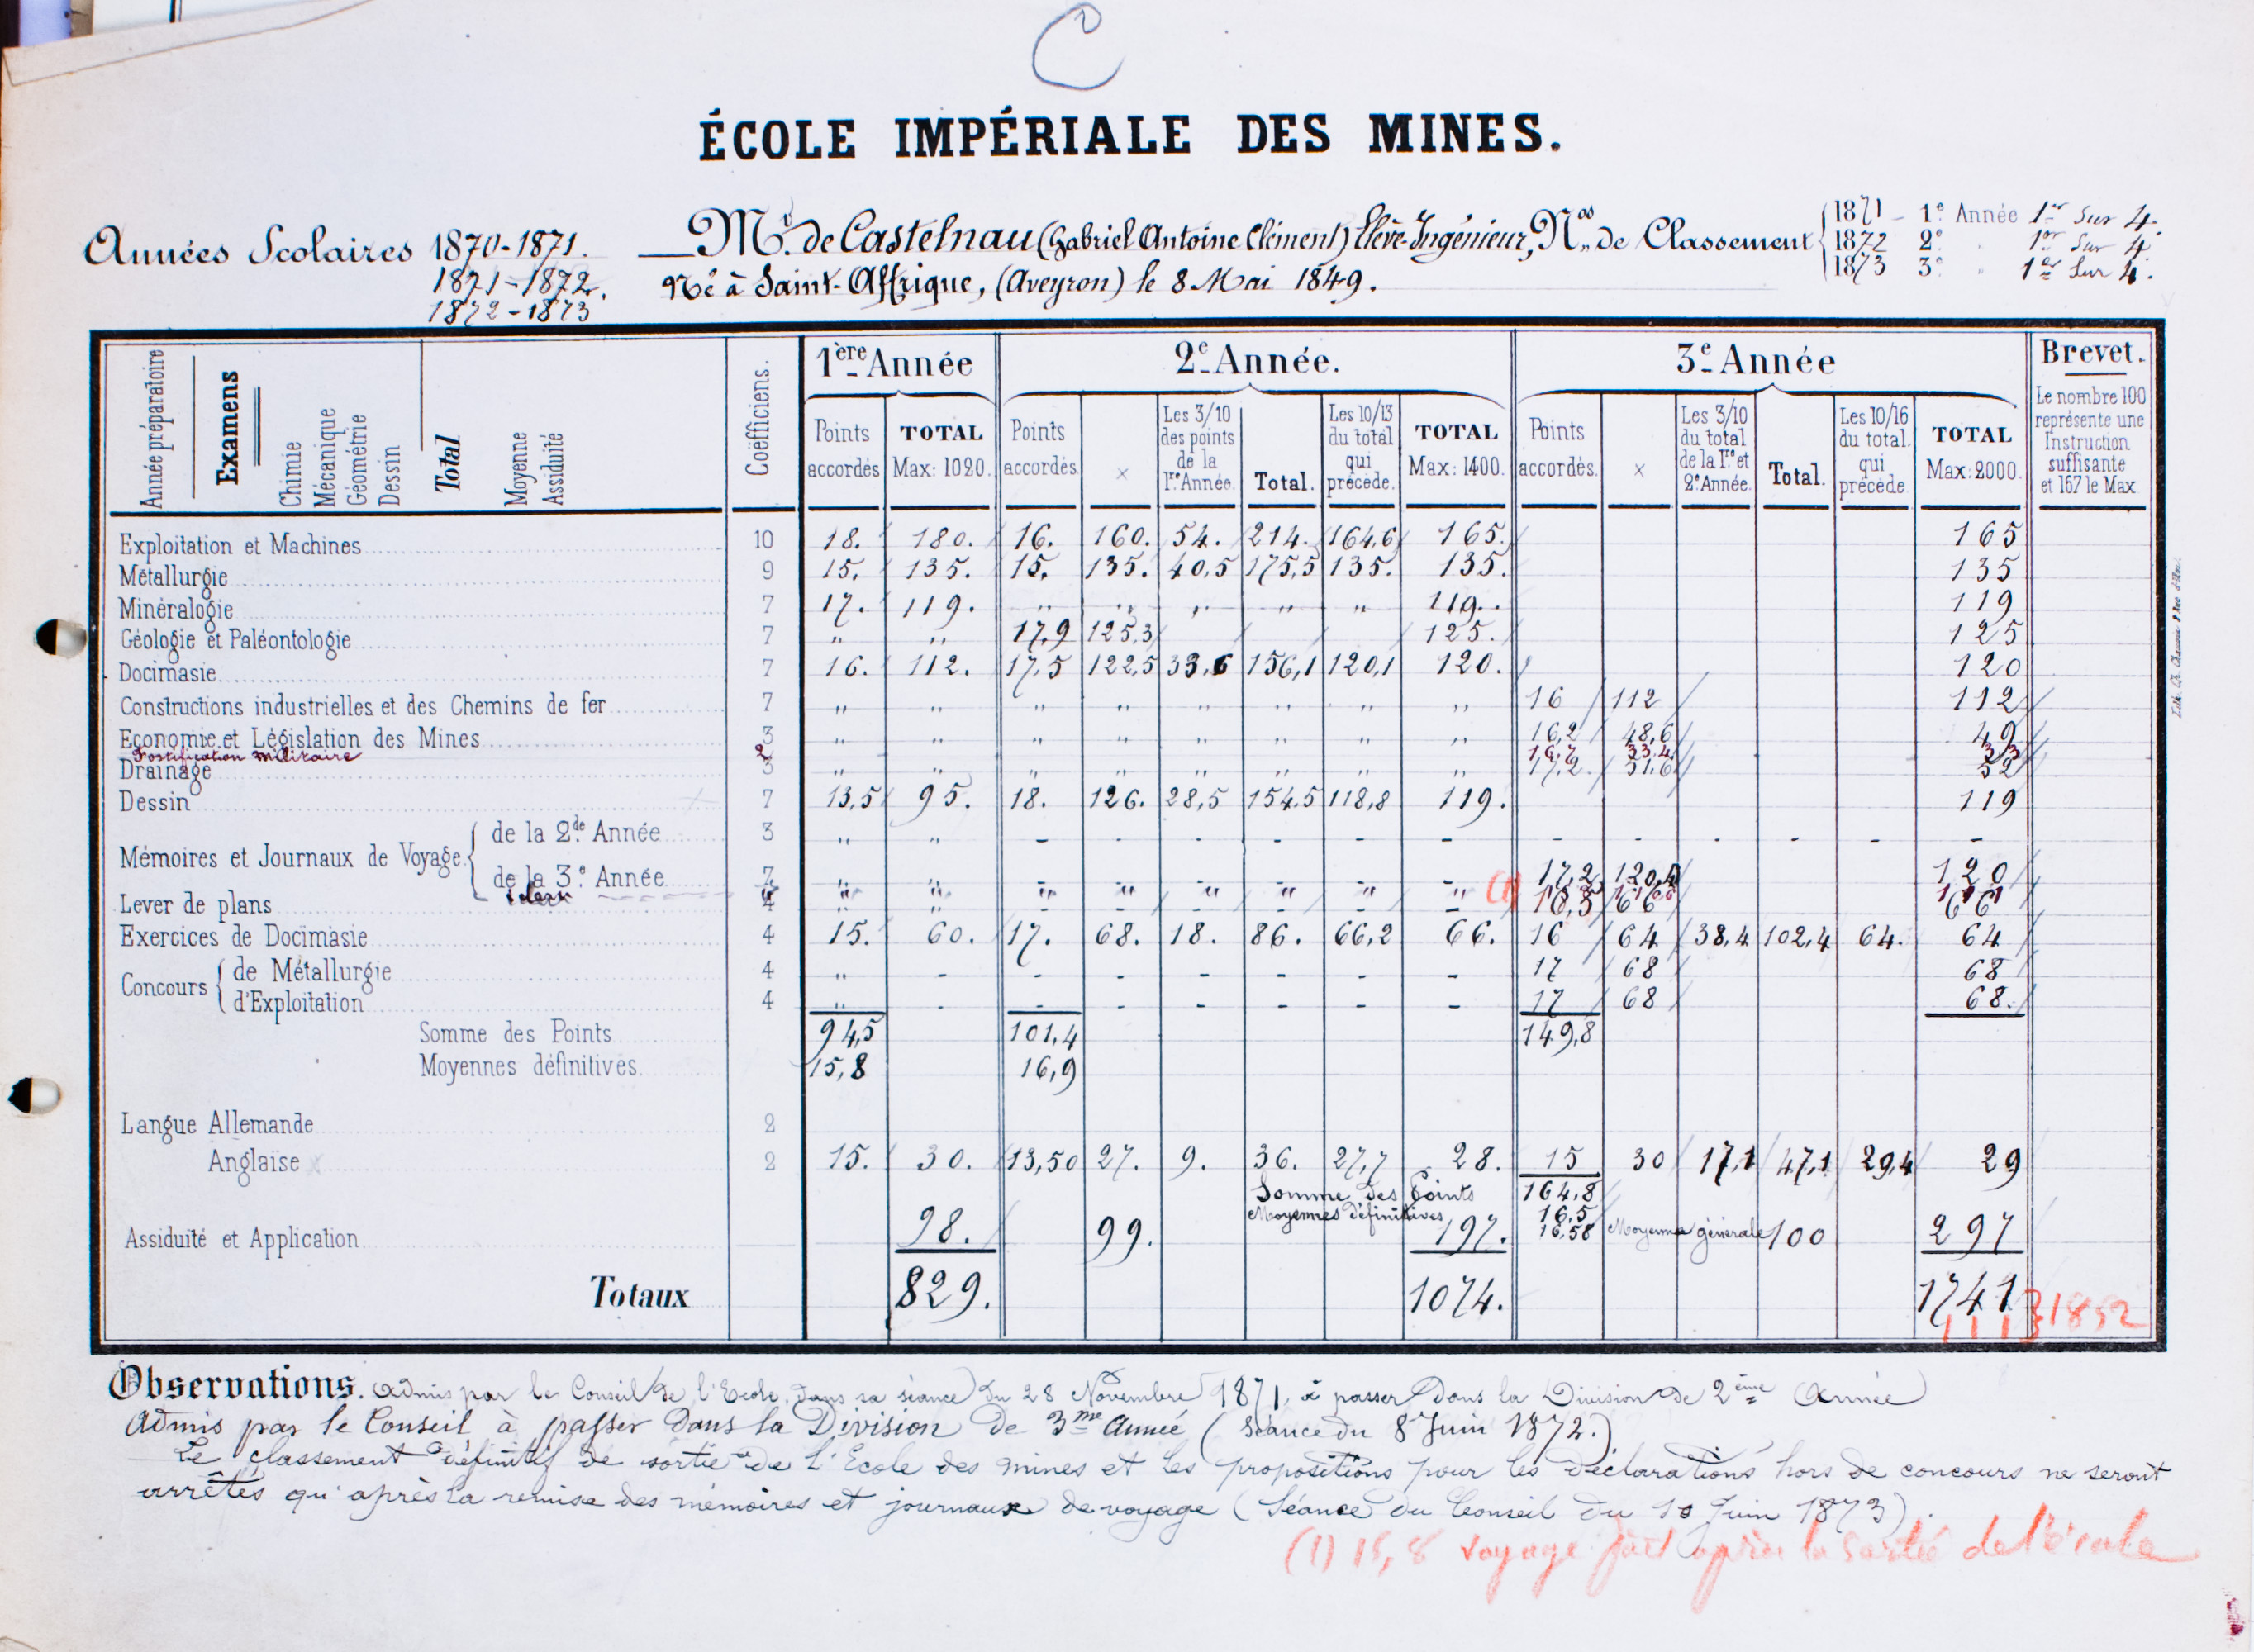 C
ÉCOLE IMPÉRIALE DES MINES.
Années Scolaires 1870-1871.
1871-1872.
1872-1873
Mr. de Castelnau (Gabriel Antoine Clément) Élève-Ingénieur, Nos de Classement
Né à Saint-Affrique, (Aveyron) le 8 Mai 1849.
1871 - 1e. Année 1er Sur 4.
1872 2e " 1er Sur 4
1873 3e " 1er Sur 4.
Année préparatoire
Examens
Chimie
Mécanique
Géométrie
Dessin
Total
Moyenne
Assiduité
Coëfficiens.
1ère Année
Points accordés
TOTAL Max: 1020.
2e Année.
Points accordés
×
Les 3/10 des points de la 1re Année.
Total.
Les 10/13 du total qui précède.
TOTAL Max: 1400.
3e Année
Points accordés.
×
Les 3/10 du total de la 1re et 2e Année.
Total.
Les 10/16 du total qui précède
TOTAL Max: 2000.
Brevet.
Le nombre 100 représente une Instruction suffisante et 167 le Max.
Exploitation et Machines 10 18. 180. 16. 160. 54. 214. 164,6 165. 165
Métallurgie 9 15. 135. 15. 135. 40,5 175,5 135. 135. 135
Minéralogie 7 17. 119. " " " " " 119. 119
Géologie et Paléontologie 7 " " 17,9 125,3 125. 125
Docimasie 7 16. 112. 17,5 122,5 33,6 156,1 120,1 120. 120
Constructions industrielles et des Chemins de fer 7 " " " " " " " " 16 112 112
Economie et Législation des Mines 3 " " " " " " " " 16,2 48,6 49
Fortification militaire 2 16,7 33,4 33
Drainage 3 " " " " " " " " 17,2 51,6 52
Dessin 7 13,5 95. 18. 126. 28,5 154.5 118,8 119. 119
Mémoires et Journaux de Voyage
de la 2de Année 3 " " - - - - - - - - - - - -
de la 3e. Année 7 " " - - - - - - 17,2 120,4 120
idem " " " " " " " " (1)
Lever de plans 4 " " - - - - - - 16,5 66 66
Exercices de Docimasie 4 15. 60. 17. 68. 18. 86. 66,2 66. 16 64 38,4 102,4 64. 64
Concours
de Métallurgie 4 " - - - - - - - 17 68 68
d'Exploitation 4 " - - - - - - - 17 68 68.
Somme des Points 94,5 101,4 149,8
Moyennes définitives 15,8 16,9
Langue Allemande 2
Anglaise 2 15. 30. 13,50 27. 9. 36. 27,7 28. 15 30 17,1 47,1 29,4 29
Somme des Points 164,8
Moyennes définitives 16,5
16,58 Moyenne générale
Assiduité et Application 98. 99. 197. 100 297
Totaux 829. 1074. 1741
1852
Observations. Admis par le Conseil de l'Ecole, dans sa séance du 28 Novembre 1871, à passer dans la Division de 2ème Année
Admis par le Conseil à passer dans la Division de 3me Année (Séance du 8 Juin 1872.)
Le classement définitif de sortie de l'Ecole des mines et les propositions pour les déclarations hors de concours ne seront
arrêtés qu'après la remise des mémoires et journaux de voyage (Séance du Conseil du 10 Juin 1873).
(1) 15,8 voyage fait après la sortie de l'école